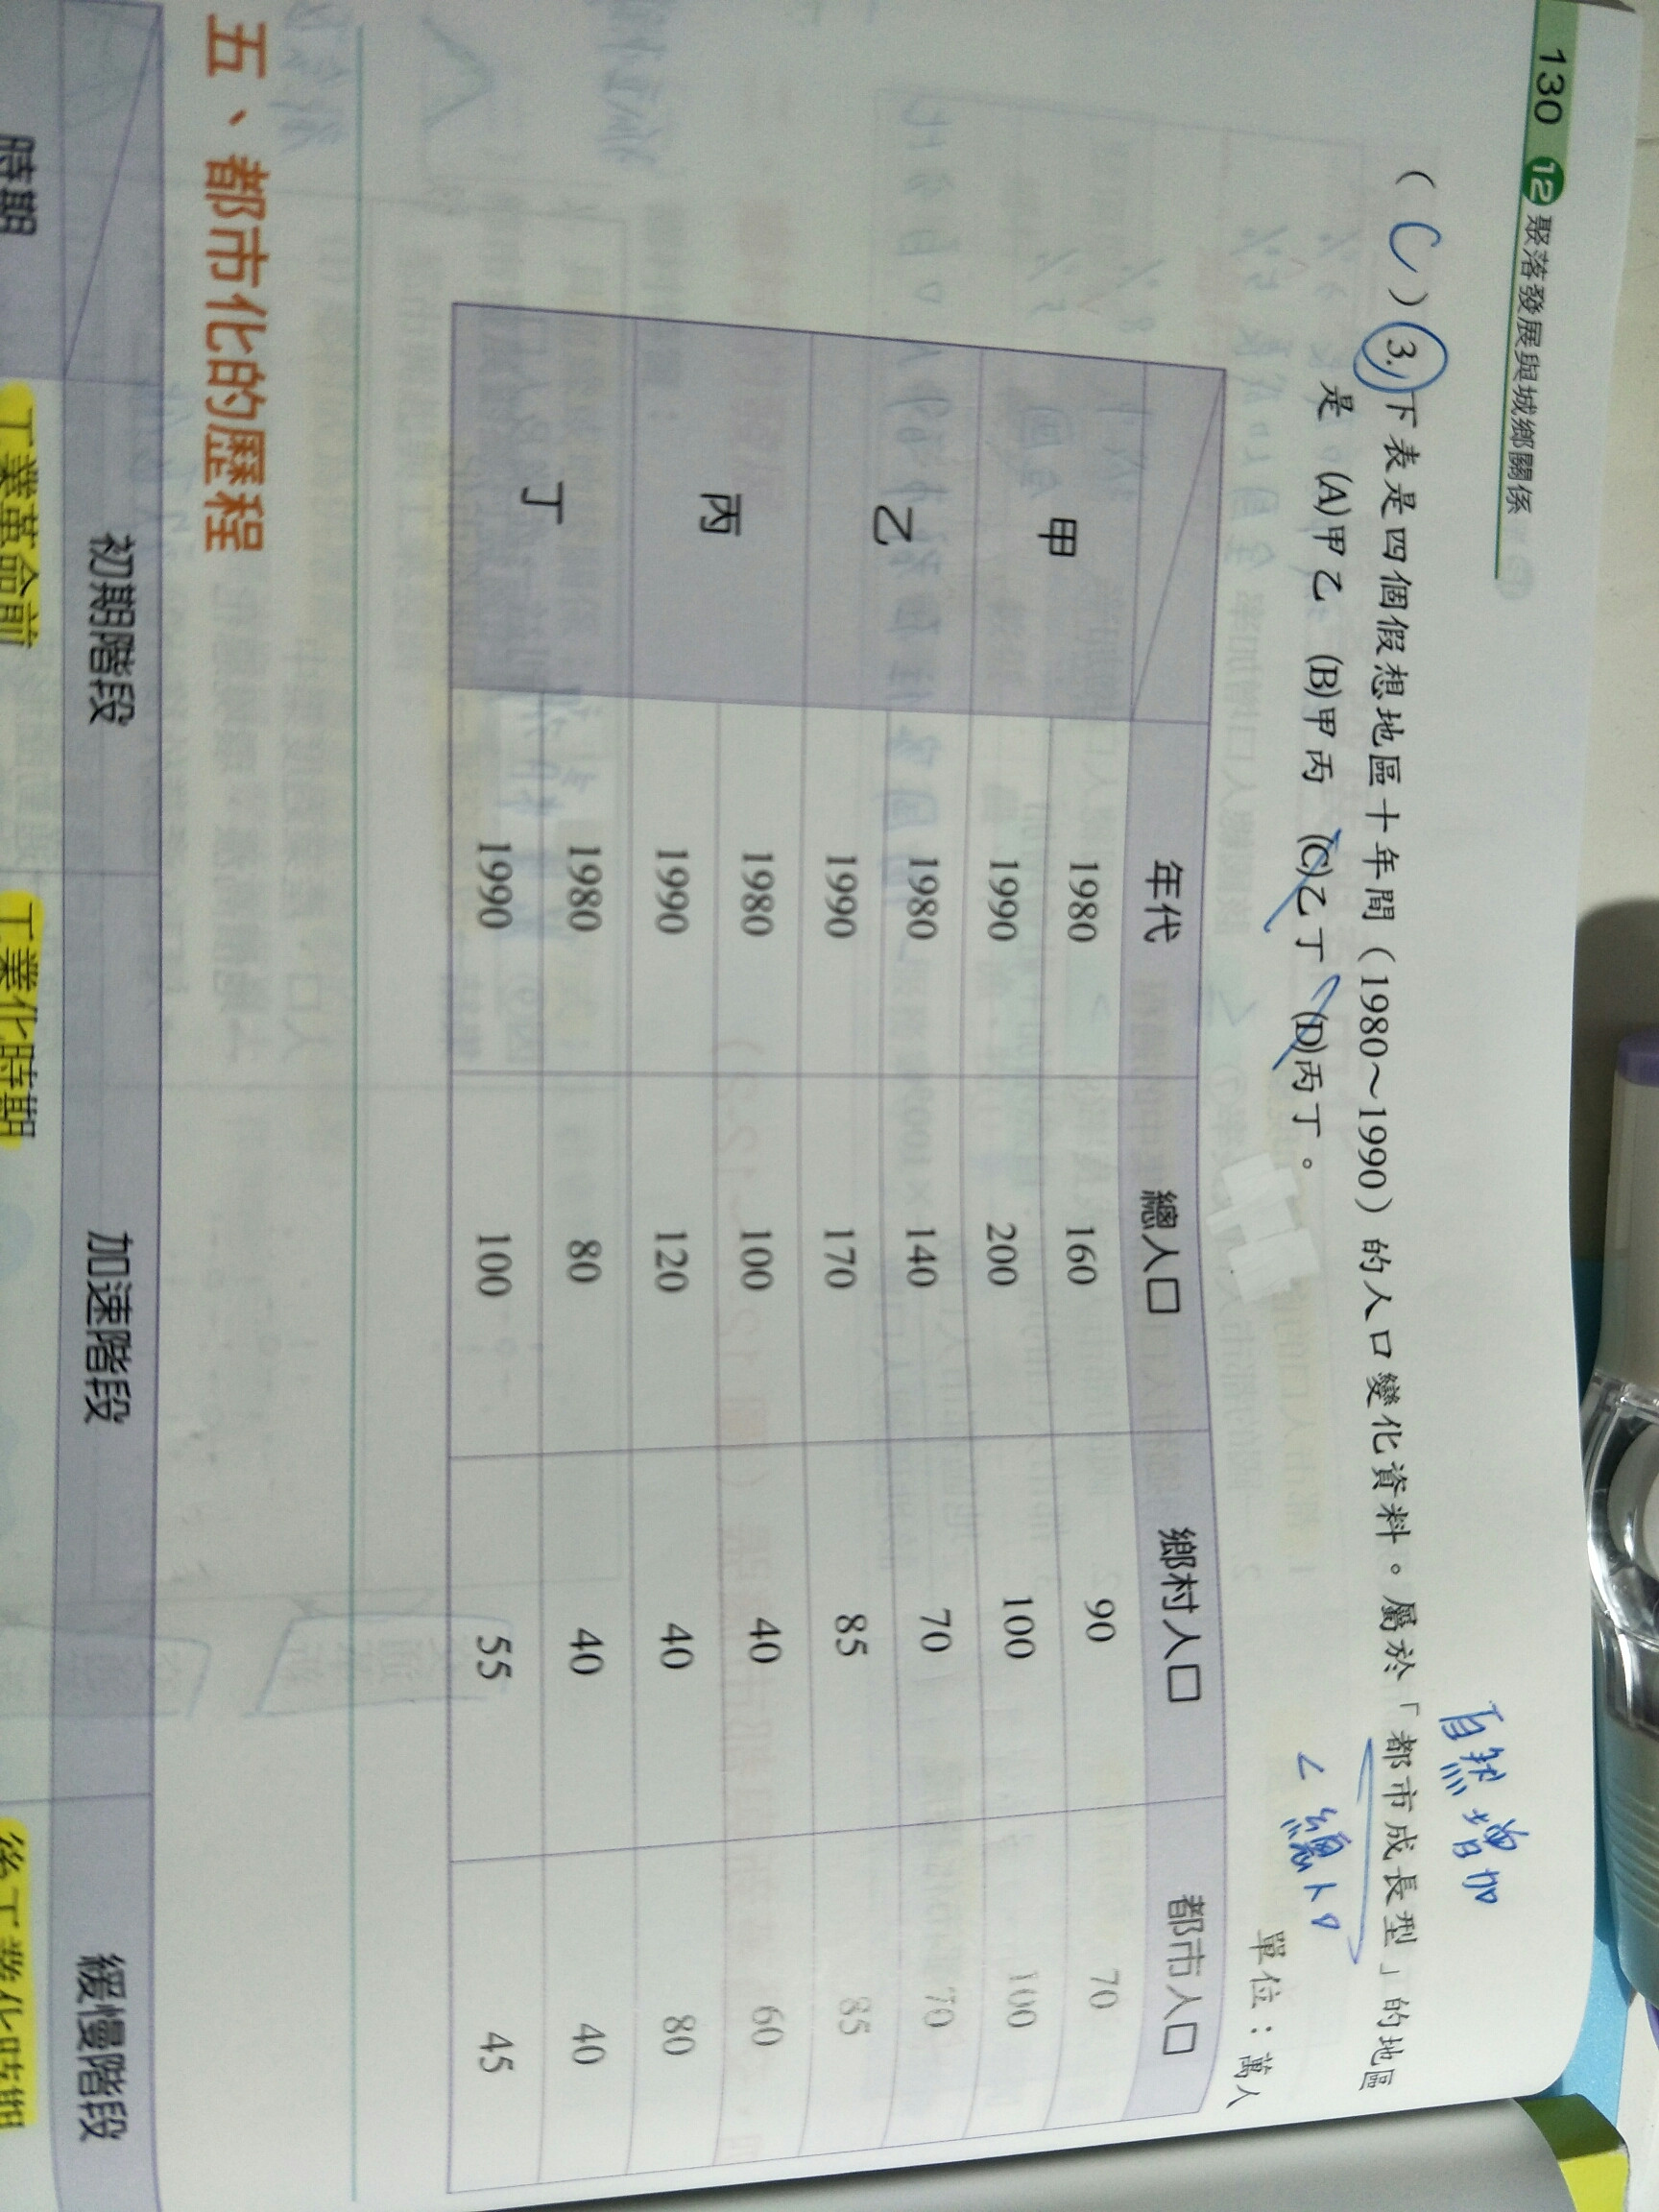 130 12 聚落發展與城鄉關係
自然增加
( C ) 3. 下表是四個假想地區十年間（1980～1990）的人口變化資料。屬於「都市成長型」的地區
是 (A)甲乙 (B)甲丙 (C)乙丁 (D)丙丁。
< 總人口
單位：萬人
年代 總人口 鄉村人口 都市人口
甲 1980 160 90 70
1990 200 100 100
乙 1980 140 70 70
1990 170 85 85
丙 1980 100 40 60
1990 120 40 80
丁 1980 80 40 40
1990 100 55 45
五、都市化的歷程
初期階段 加速階段 緩慢階段
時期 工業革命前 工業化時期 後工業化時期